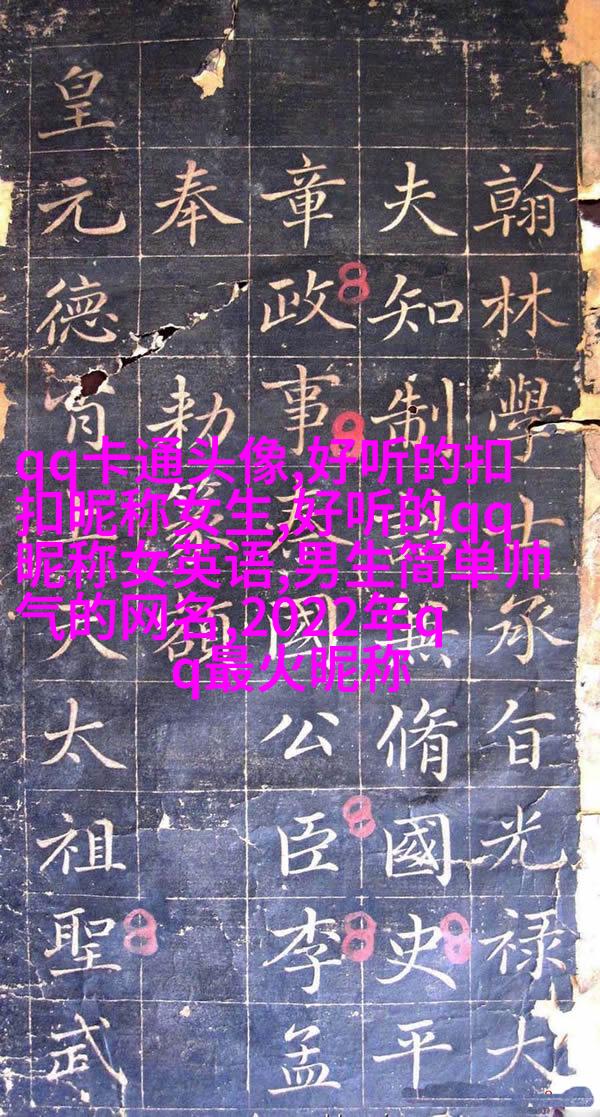 qq卡通头像,好听的扣
扣昵称女生,好听的qq
昵称女英语,男生简单帅
气的网名,2022年q
q最火昵称
翰林學士承旨光禄大
夫知制兼脩國史平
章政事秦國公臣李孟
奉勅篆額
皇元德育大太祖聖武